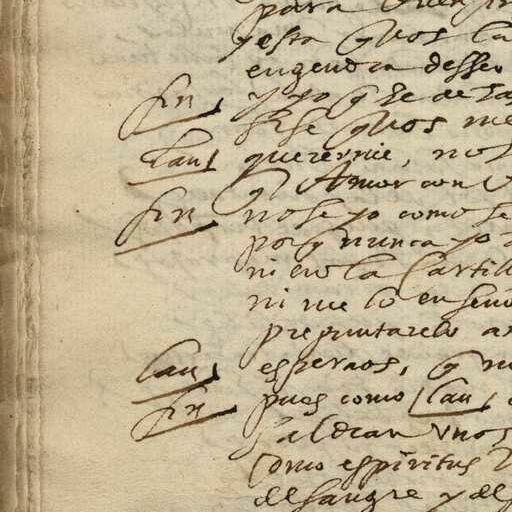 para
y esta q vos la
engendra desseo
fin y yo q
q vos me
lau quererme, no
q Amor con
fin no se yo como se
porq nunca yo
ni en la Cartill
ni me lo enseño
preguntarelo a
lau esperaos, q no
fin pues como lau
saldran unos
como espiritus
del sangre y del